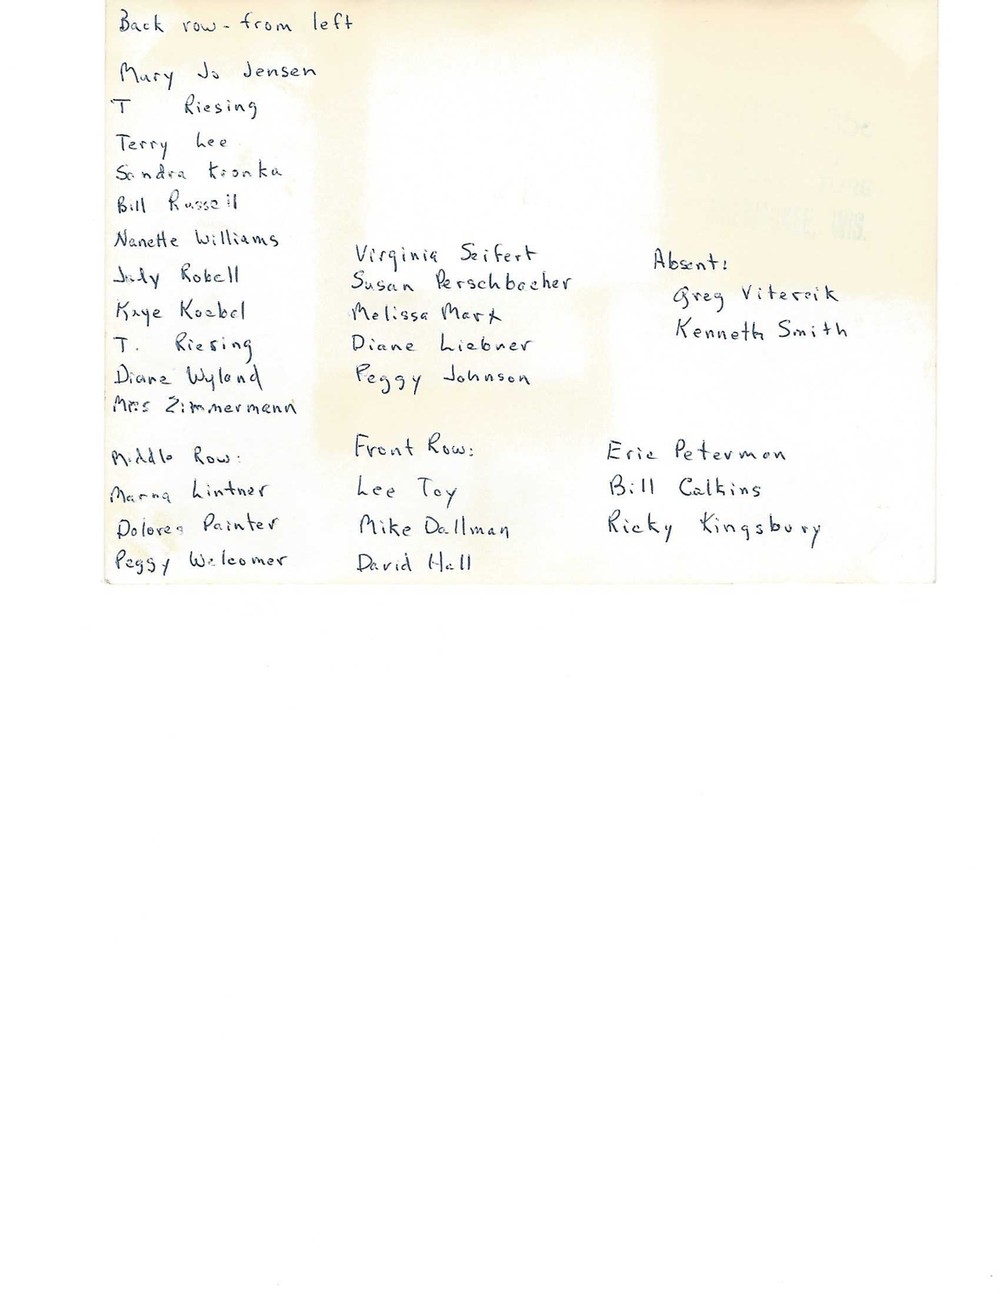 Back row - from left
Mary Jo Jensen
T Riesing
Terry Lee
Sandra Kronka
Bill Russell
Nanette Williams
Judy Robell
Kaye Koebel
T. Riesing
Diane Wyland
Mrs Zimmermann
Middle Row:
Marna Lintner
Dolores Painter
Peggy Welcomer
Virginia Seifert
Susan Perschbacher
Melissa Marx
Diane Liebner
Peggy Johnson
Front Row:
Lee Toy
Mike Dallman
David Hall
Eric Peterman
Bill Calkins
Ricky Kingsbury
Absent:
Greg Vitercik
Kenneth Smith